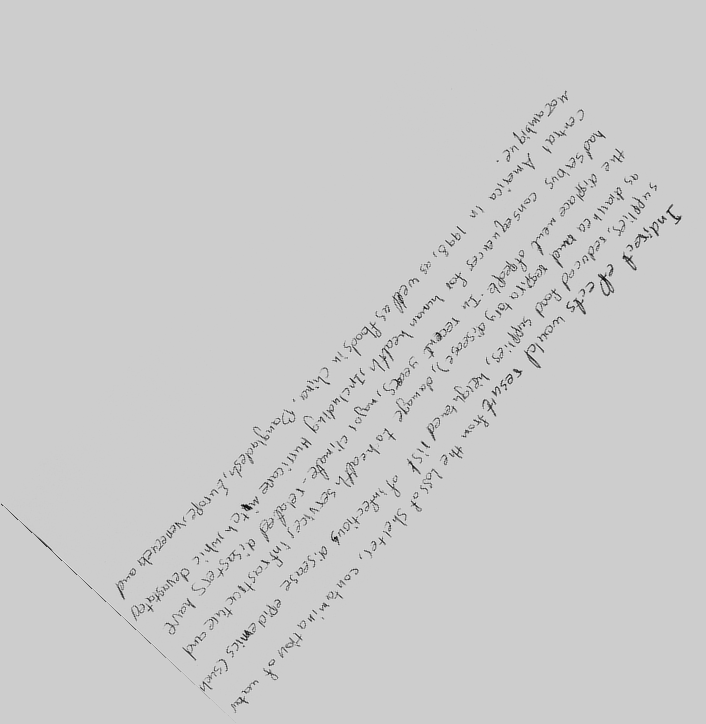 Indirect effects would result from the loss of shelter, contamination of water
supplies, reduced food supplies, heightened risk of infectious disease epidemics (such
as diarrhea and respiratory disease), damage to health services infrastructure and
the displacement of people. In recent years, major climate-related disasters have
had serious consequences for human health, Including Hurricane mitch, whic devastated
Central America in 1998, as well as floods in China, Bangladesh, Europe, Venezuela and
Mozambique.